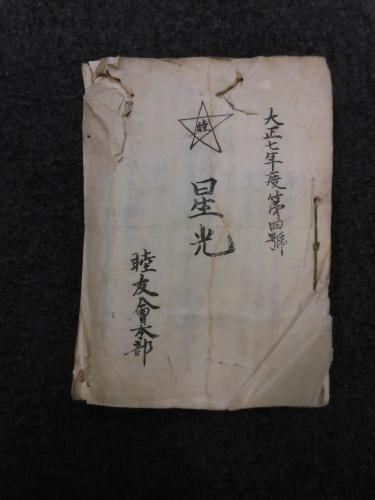 大正七年度第四號
睦
星光
睦友會本部